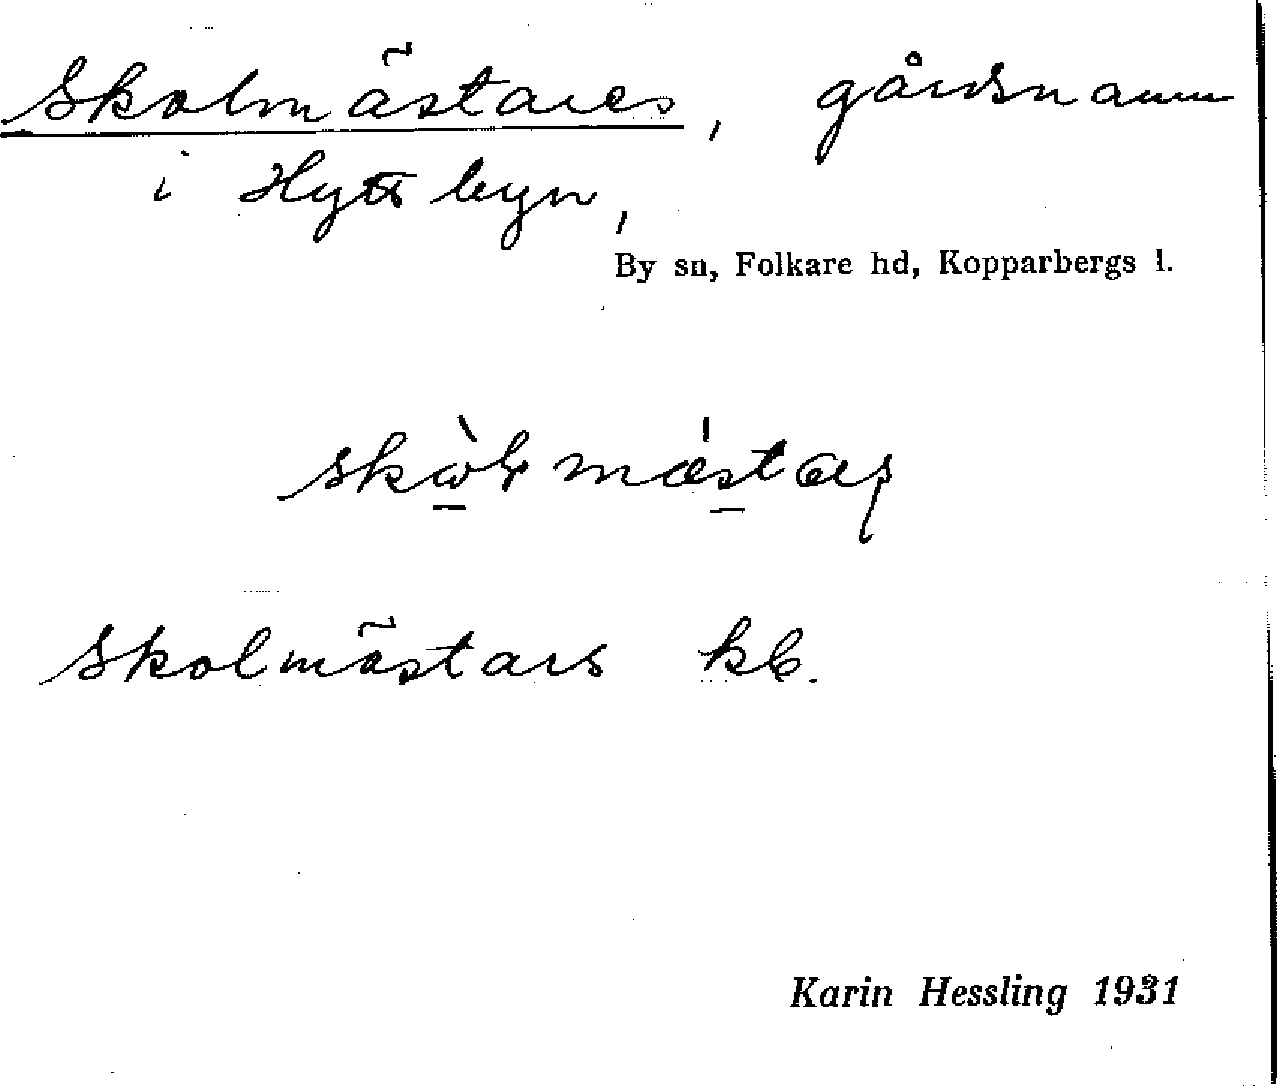 Skolmästares, gårdsnamn
i Hyttbyn,
By sn, Folkare hd, Kopparbergs l.
Skolmästars kb.
Karin Hessling 1931